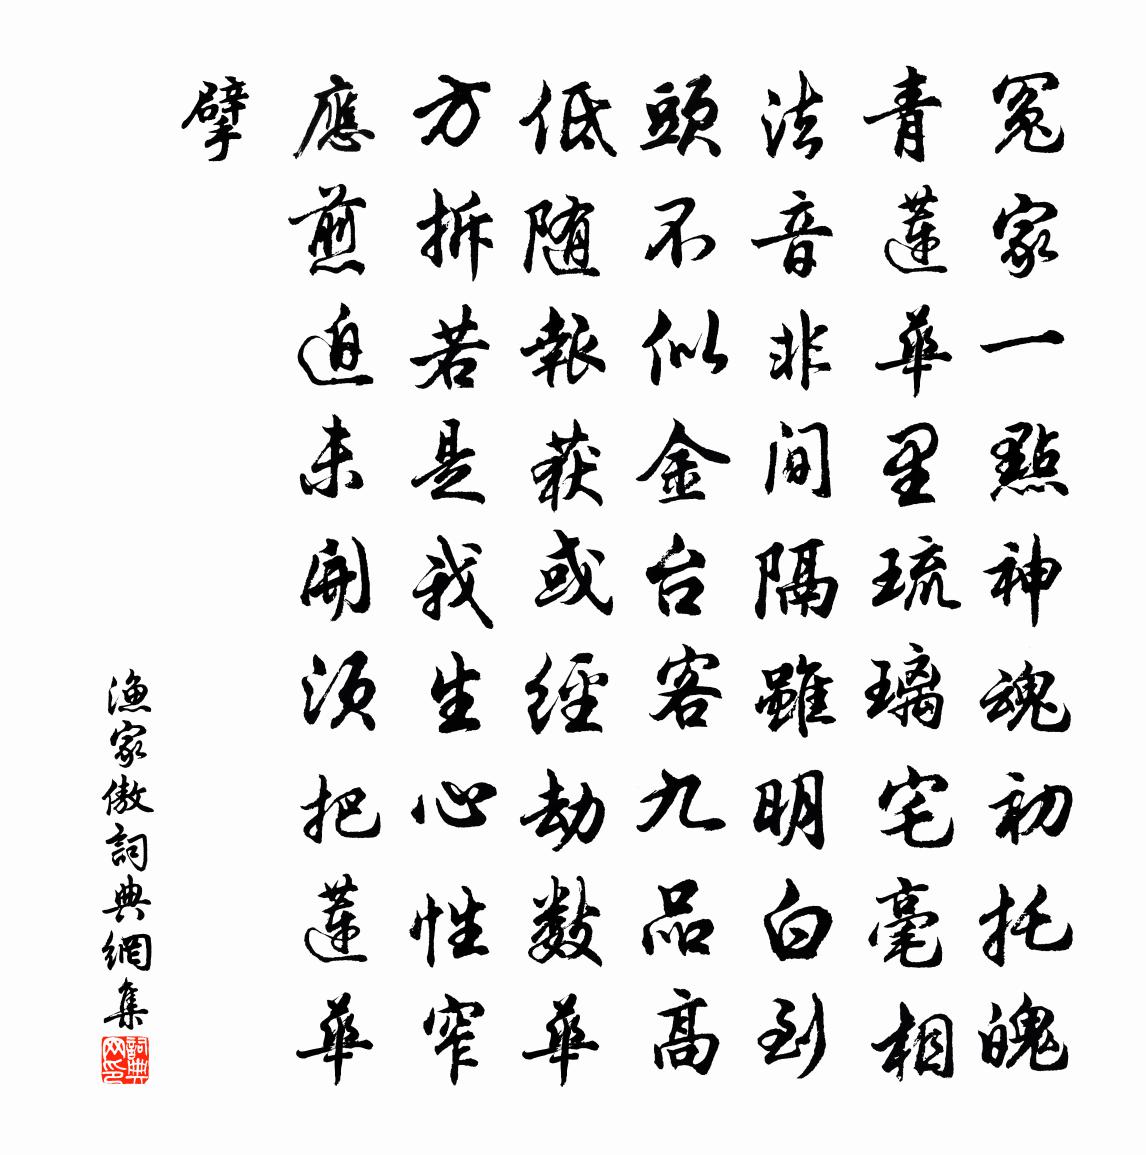 冤家一點神魂初托魄
青蓮華里琉璃宅毫相
法音非間隔雖明白到
頭不似金台客九品高
低随報获或經劫數華
方拆若是我生心性窄
應煎迫未開須把蓮華
擘
漁家傲詞典網集
詞典网印